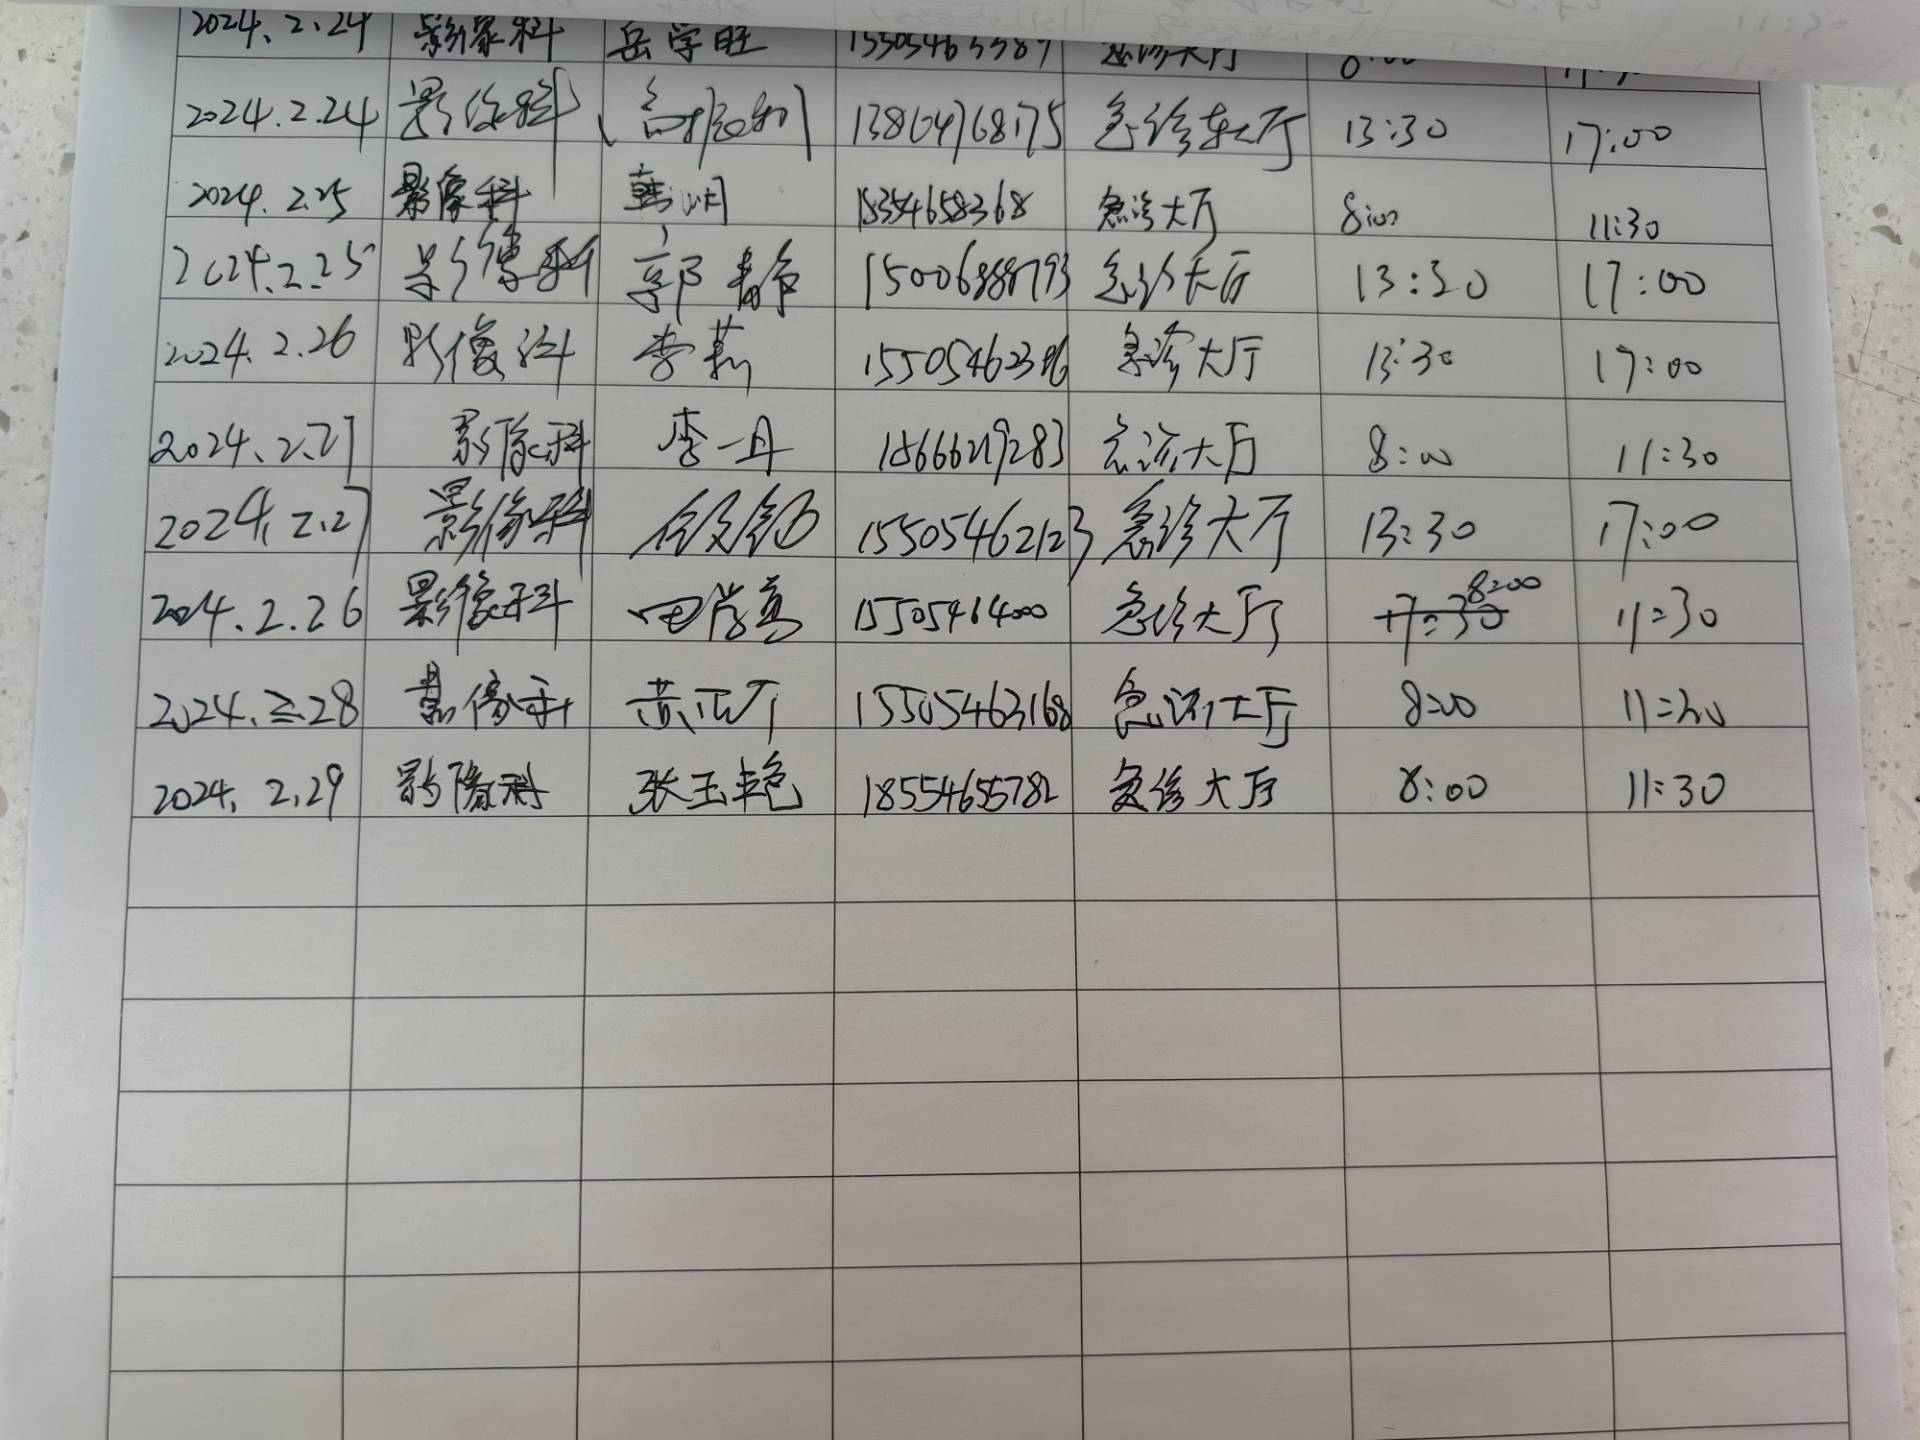 2024.2.24 影像科 岳学旺 急诊大厅
2024.2.24 影像科 13864768175 急诊大厅 13:30 17:00
2024.2.25 影像科 韩明 18354658368 急诊大厅 8:00 11:30
2024.2.25 影像科 郭春节 15006888793 急诊大厅 13:30 17:00
2024.2.26 影像科 李莉 急诊大厅 13:30 17:00
2024.2.27 影像科 李一丹 15666219283 急诊大厅 8:00 11:30
2024.2.27 影像科 15505462123 急诊大厅 13:30 17:00
2024.2.26 影像科 15505464000 急诊大厅 8:00 11:30
2024.2.28 影像科 15505463168 急诊大厅 8:00 11:30
2024.2.29 影像科 张玉艳 18554655782 急诊大厅 8:00 11:30